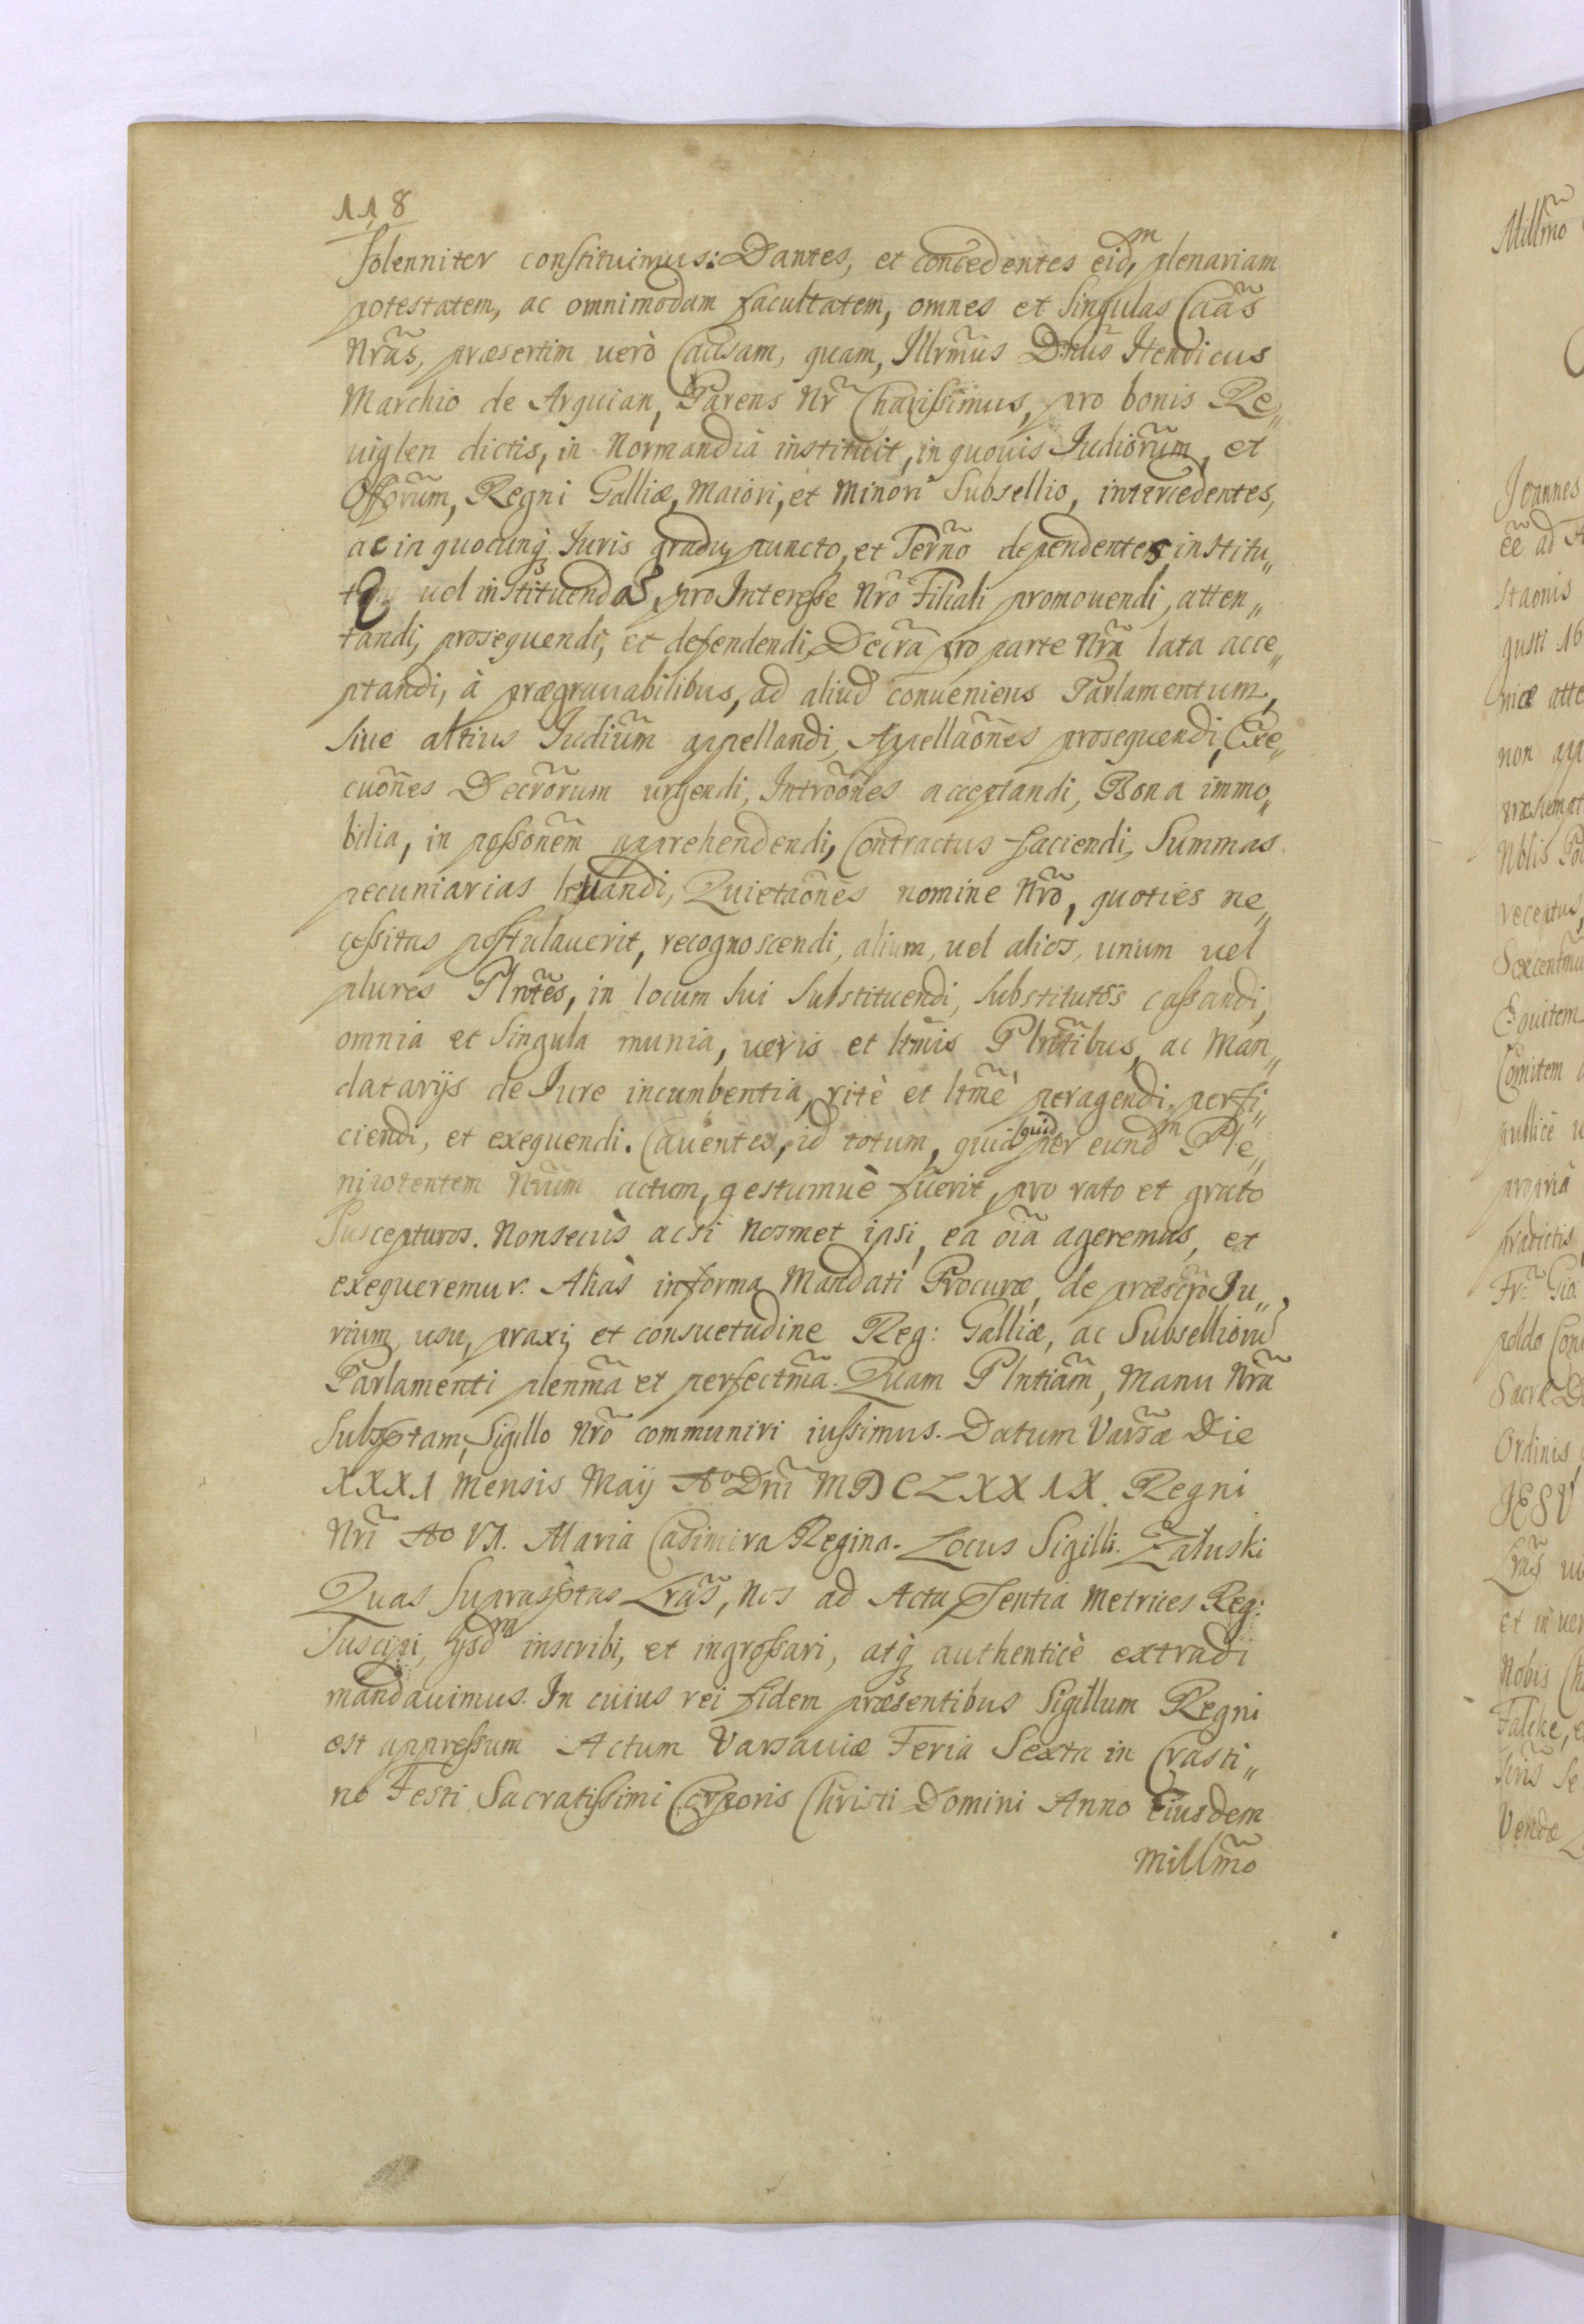 118
solenniter constituimus: Dantes, et concedentes eid͂m plenariam
potestatem, ac omnimodam facultatem, omnes et singulas Caãs
Nrãs, præsertim uerò Causam, quam, Illrm̃us Dñus Henricus
Marchio de Arquian, Parens Nr̃ Charissimus, pro bonis Re„
uiglen dictis, in Normandia instituit, in quouis Judiorũm, et
Offorũm, Regni Galliæ, Maiori, et Minori Subsellio, intercedentes,
ac in quocunq; Iuris gradu, puncto, et Ter̃no dependentes, institu„
uel instituendas, pro Interesse Nrõ Filiali promouendi, atten„
tandi, prosequendi, et defendendi, Decrã pro parte Nrã lata acce„
ptandi, à prægrauabilibus, ad aliud conueniens Parlamentum,
siue altius Judiũm appellandi, Appellaõnes prosequendi, Exe„
cuõnes Decrõrum urgendi, Introõnes acceptandi, Bona immo„
bilia, in possonẽm apprehendendi, Contractus faciendi, Summas
pecuniarias leuandi, Quietaõnes nomine Nrõ, quoties ne„
cessitas postulauerit, recognoscendi, alium, uel alios, unum uel
plures Plñtes, in locum sui substituendi, substitutos cassandi,
omnia et singula munia, ueris et ltm̃is Plñtibus, ac Man„
datarijs de Iure incumbentia, ritè et ltm̃è peragendi, perfi„
ciendi, et exequendi. Cauentes, id totum, quid quid per eund͂m Ple„
nipotentem Nrũm actum, gestumuè fuerit, pro rato et grato
Suscepturos. Nonsecùs acsi Nosmet ipsi, ea oĩa ageremus, et
exequeremur. Aliàs informa Mandati Procuræ, de præscrip̃to Iu„
rium, usu, praxi, et consuetudine Reg: Galliæ, ac Subselliorũ
Parlamenti plenm̃a et perfectm̃a. Quam Plntiãm, Manu Nrã
Subscptam, Sigillo Nrõ communiri iussimus. Datum Varsæ Die
XXXI Mensis Maij Aᵒ Dnĩ MDCLXXIX. Regni
Nrĩ Ao VI. Maria Casimira Regina. Locus Sigilli. Załuski
Quas Suprasc̃ptas Lrãs, Nos ad Acta Psentia Metrices Reg:
Suscipi, ijsd͂m inscribi, et ingrossari, atq; authenticè extradi
mandauimus. In cuius rei fidem præsentibus Sigillum Regni
est appressum Actum Varsauiæ Feria Sexta in Crasti„
no Festi Sacratissimi Corporis Christi Domini Anno Eiusdem
Millm̃o